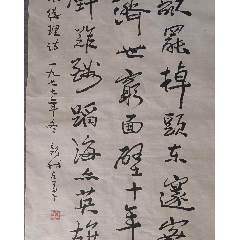 歌罷掉頭东邃密
濟世窮面壁十年
難酬蹈海亦英雄
總理詩一九七七年冬